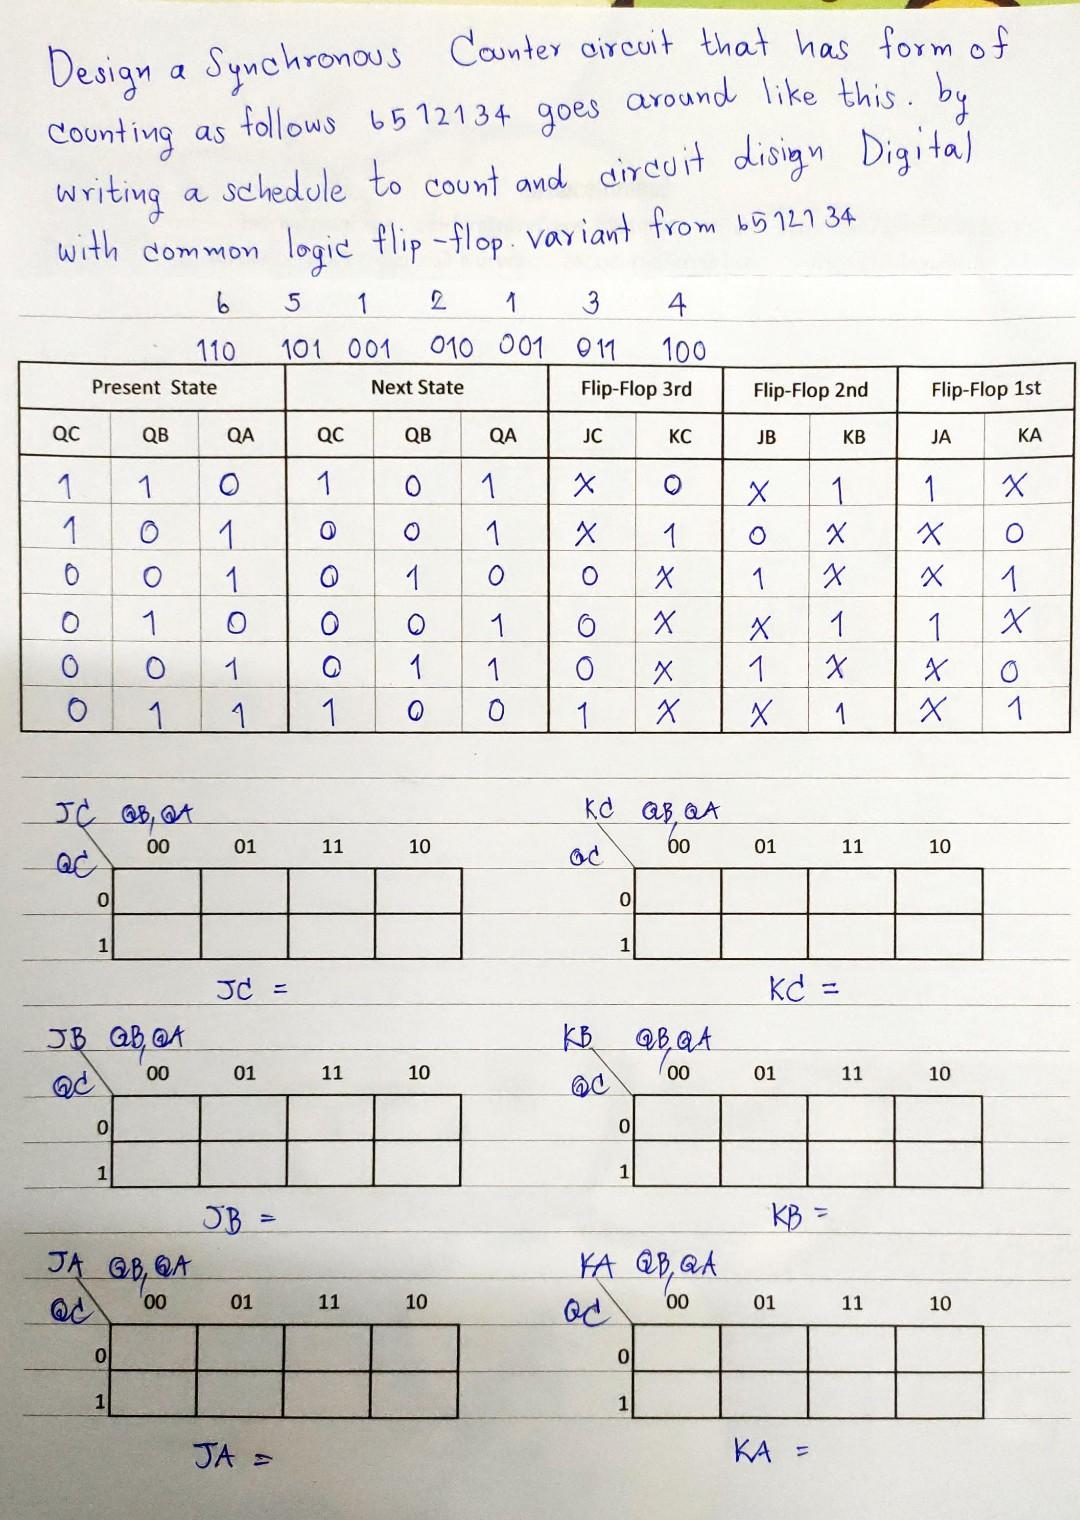 Design a Synchronous Counter circuit that has form of
counting as follows 6512134 goes around like this. by
writing a schedule to count and circuit disign Digital
with common logic flip-flop. variant from 6512134
6 5 1 2 1 3 4
110 101 001 010 001 011 100
Present State Next State Flip-Flop 3rd Flip-Flop 2nd Flip-Flop 1st
QC QB QA QC QB QA JC KC JB KB JA KA
1 1 0 1 0 1 X 0 X 1 1 X
1 0 1 0 0 1 X 1 0 X X 0
0 0 1 0 1 0 0 X 1 X X 1
0 1 0 0 0 1 0 X X 1 1 X
0 0 1 0 1 1 0 X 1 X X 0
0 1 1 1 0 0 1 X X 1 X 1
JC QB,QA KC QB,QA
QC 00 01 11 10 QC 00 01 11 10
0 0
1 1
JC = KC =
JB QB,QA KB QB,QA
QC 00 01 11 10 QC 00 01 11 10
0 0
1 1
JB = KB =
JA QB,QA KA QB,QA
QC 00 01 11 10 QC 00 01 11 10
0 0
1 1
JA = KA =